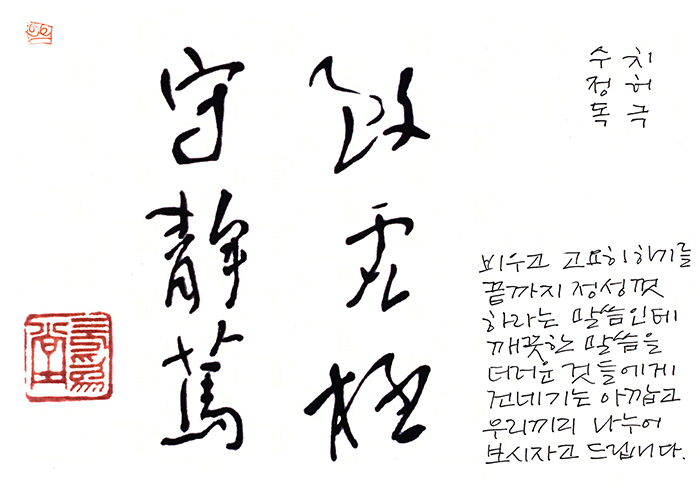 致虛極
守靜篤
치허극
수정독
비우고 고요히 하기를
끝까지 정성껏
하라는 말씀인데
깨끗한 말씀을
더러운 것들에게
건네기는 아깝고
우리끼리 나누어
보시자고 드립니다.